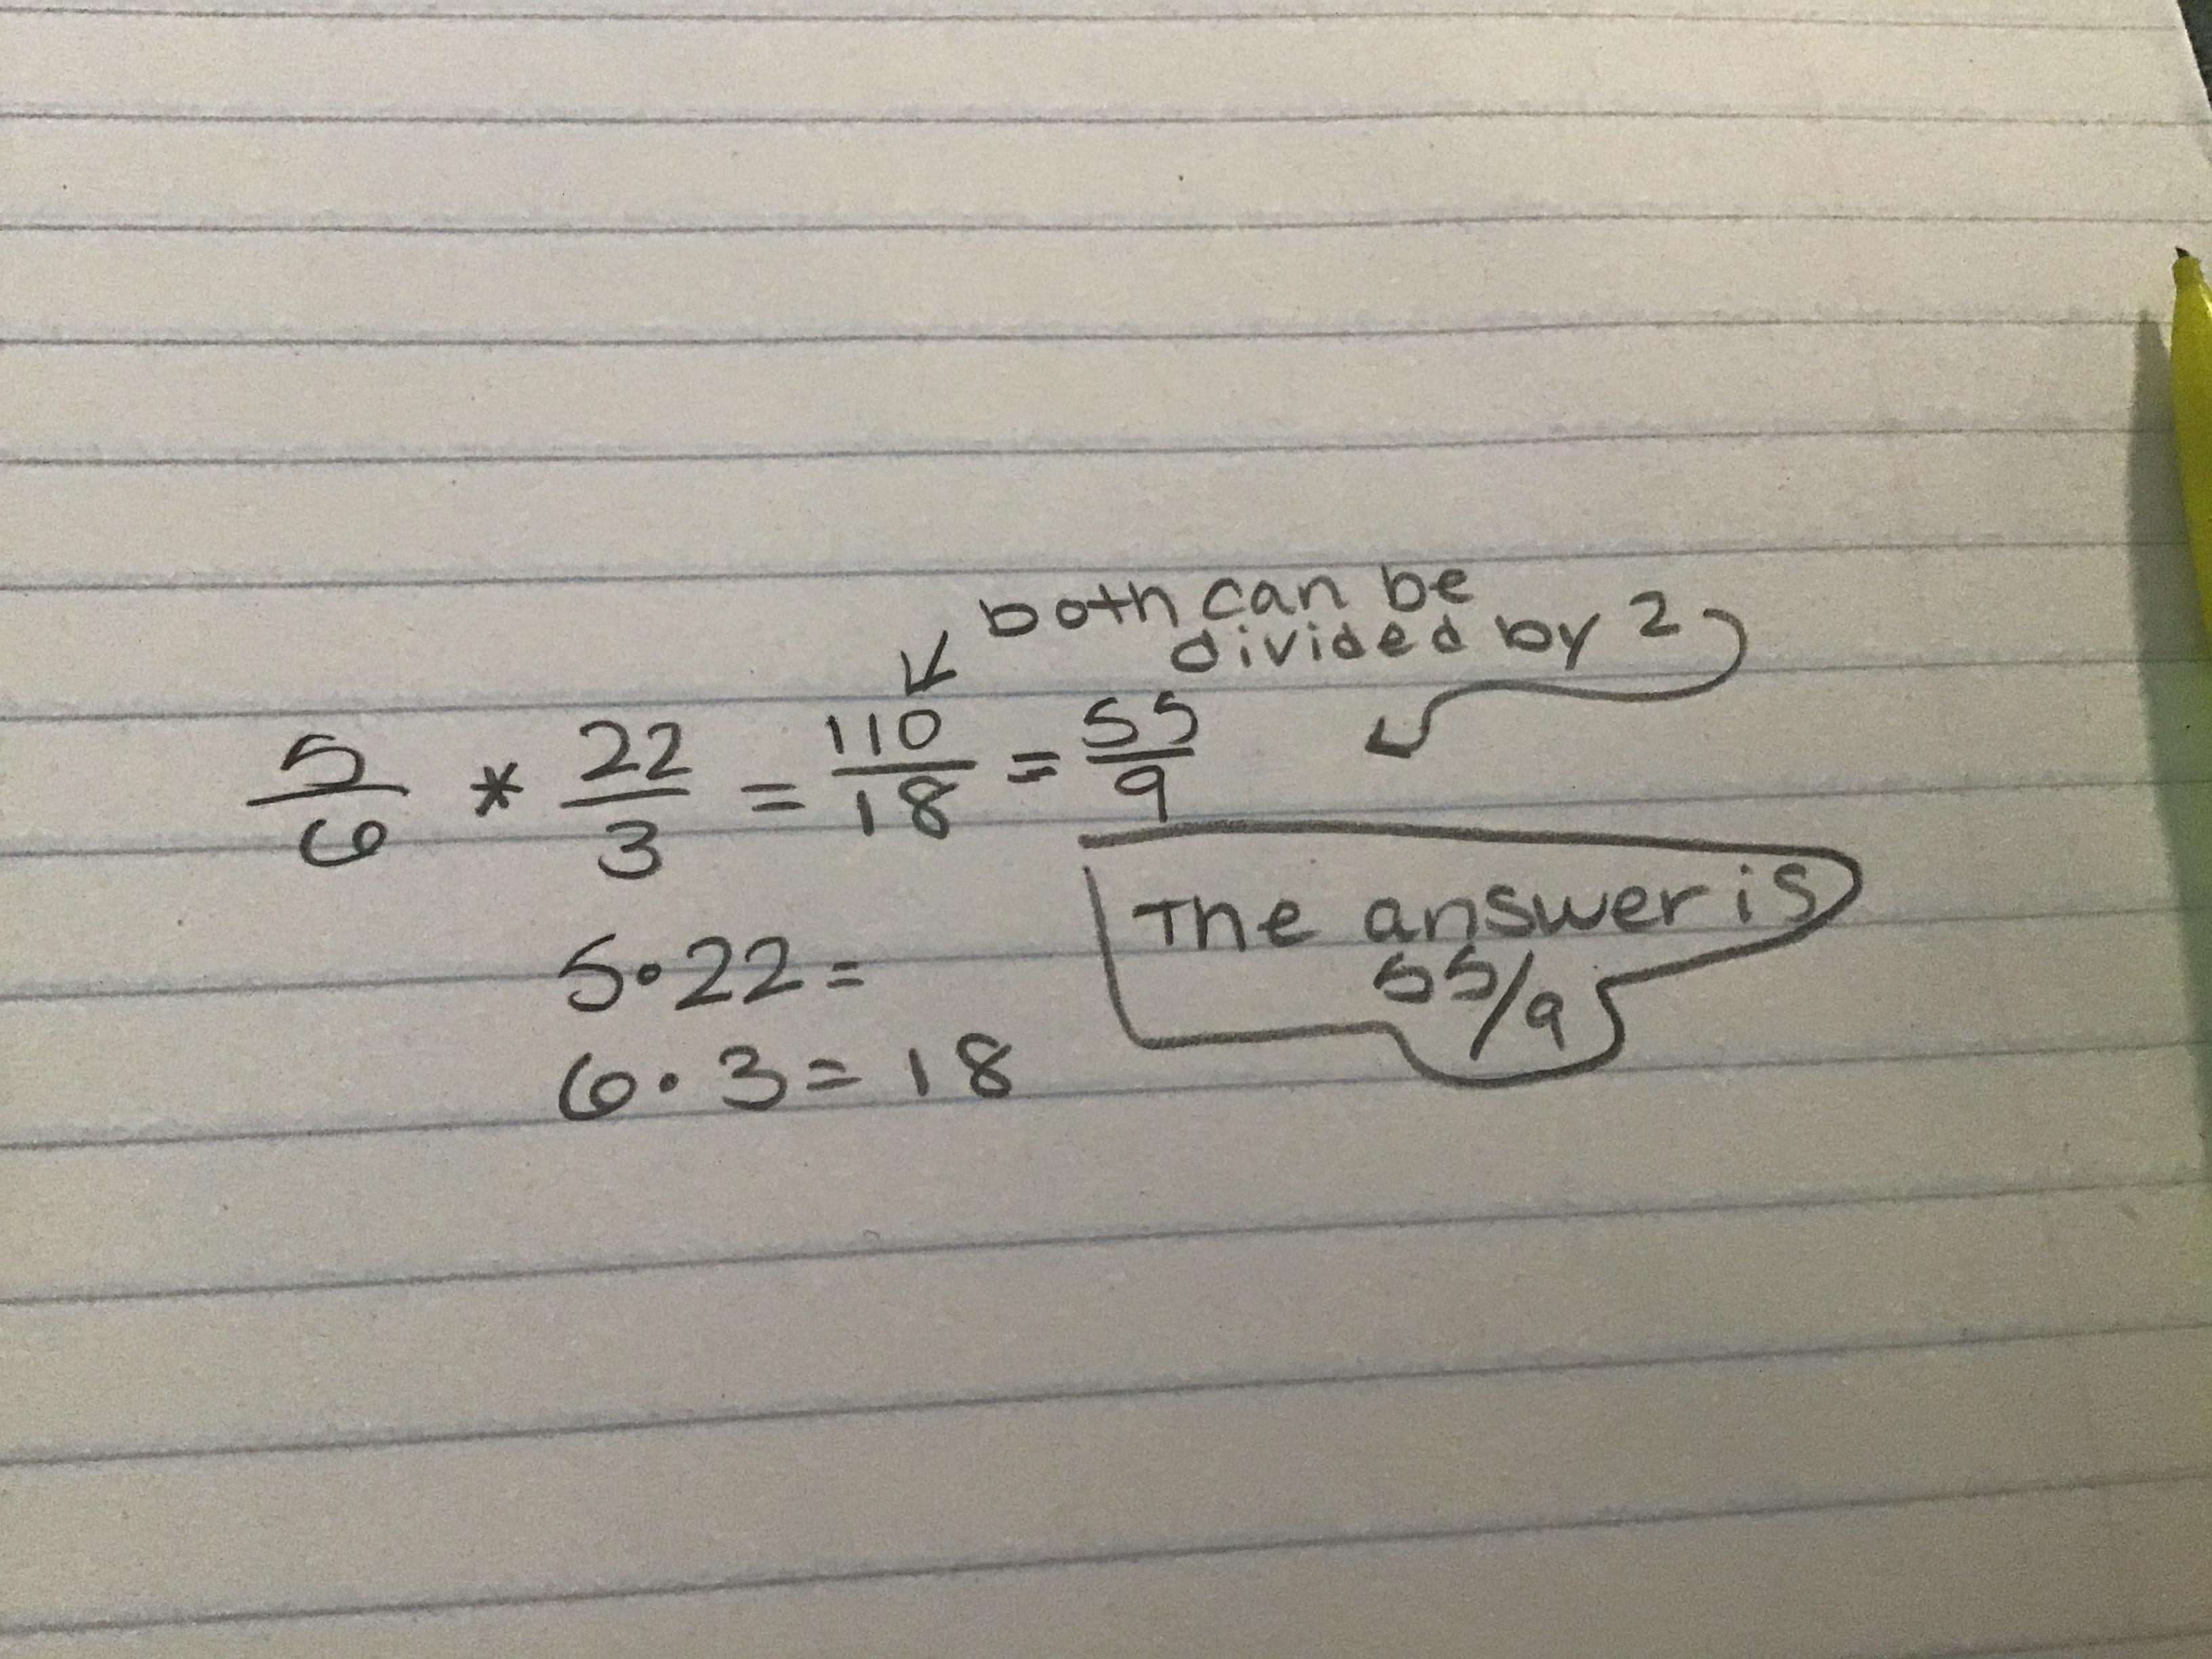 both can be
divided by 2
5/6 * 22/3 = 110/18 = 55/9
5·22=
6·3=18
The answer is
55/9